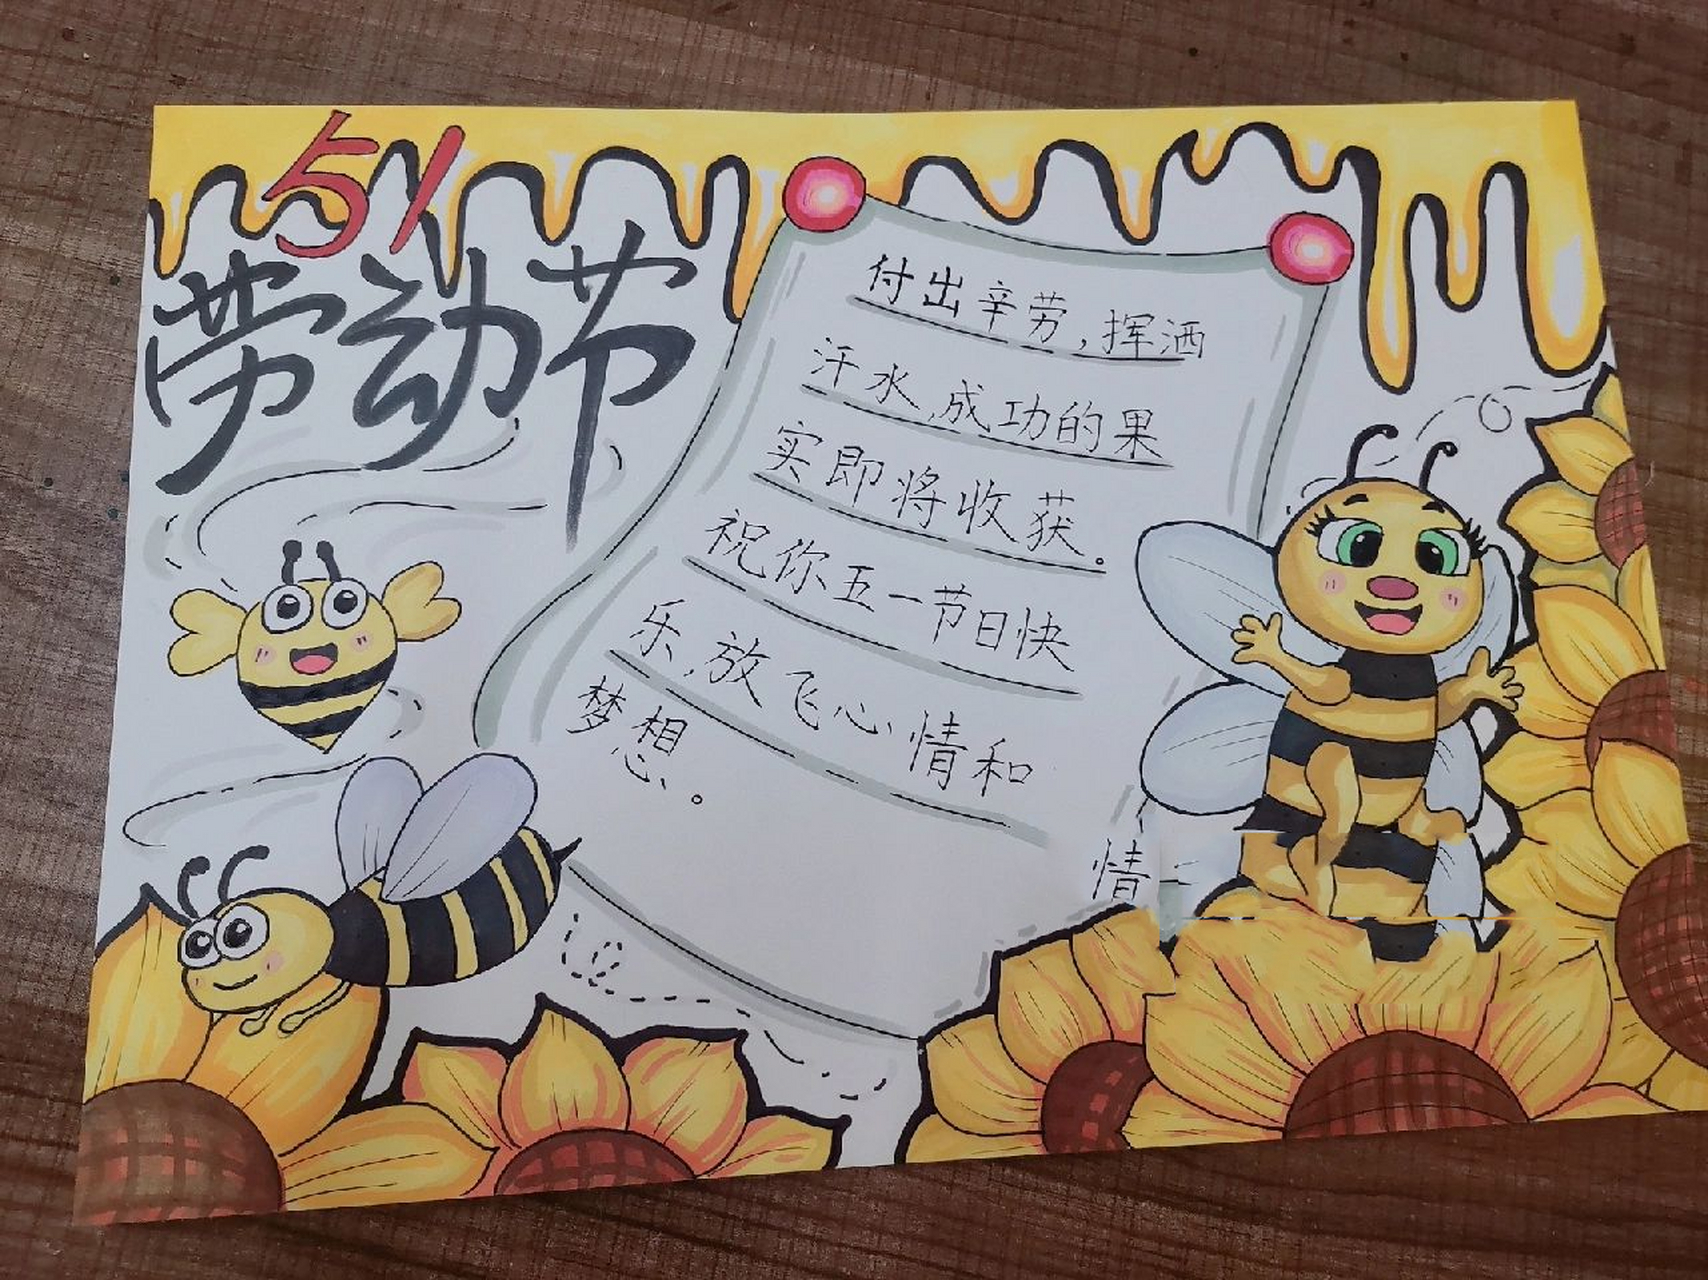 51
劳动节
付出辛劳,挥洒
汗水,成功的果
实即将收获。
祝你五一节日快
乐,放飞心情和
梦想。
情